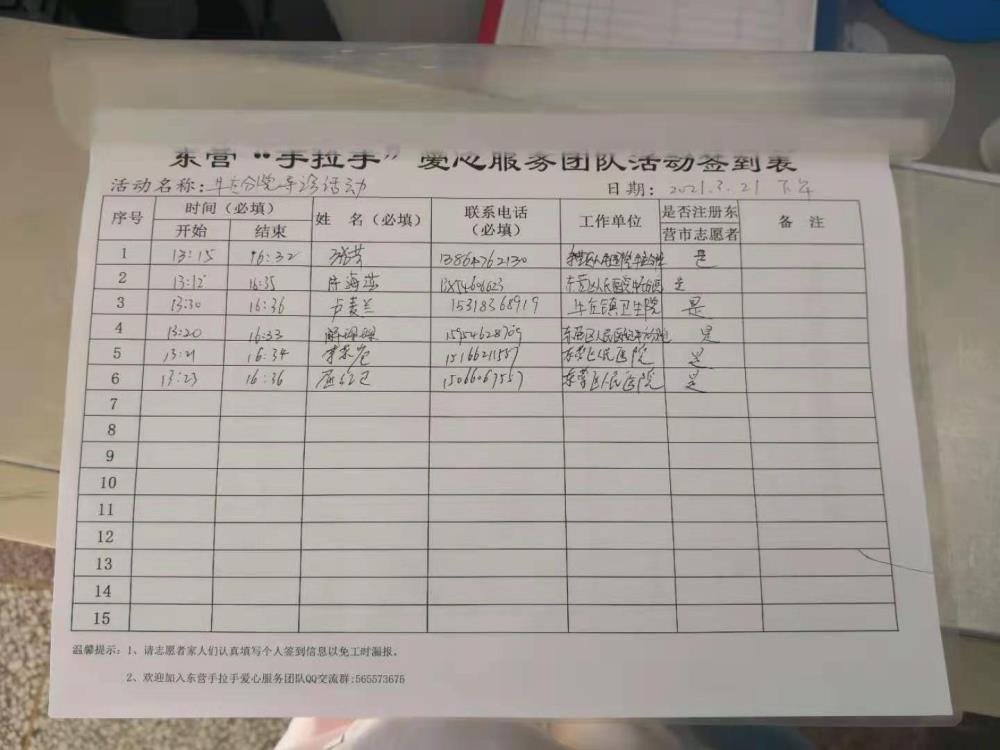 东营“手拉手”爱心服务团队活动签到表
活动名称：牛庄分院导诊活动 日期：2021.3.21 下午
序号 时间（必填） 姓 名（必填） 联系电话（必填） 工作单位 是否注册东营市志愿者 备 注
开始 结束
1 13:15 16:32 13864762130 是
2 13:12 16:35 是
3 13:30 16:36 卢麦兰 15318368919 牛庄镇卫生院 是
4 13:20 16:33 15954628709 是
5 13:21 16:34 15166211557 东营区人民医院 是
6 13:23 16:36 15066067557 东营区人民医院 是
7
8
9
10
11
12
13
14
15
温馨提示：1、请志愿者家人们认真填写个人签到信息以免工时漏报。
2、欢迎加入东营手拉手爱心服务团队QQ交流群:565573675